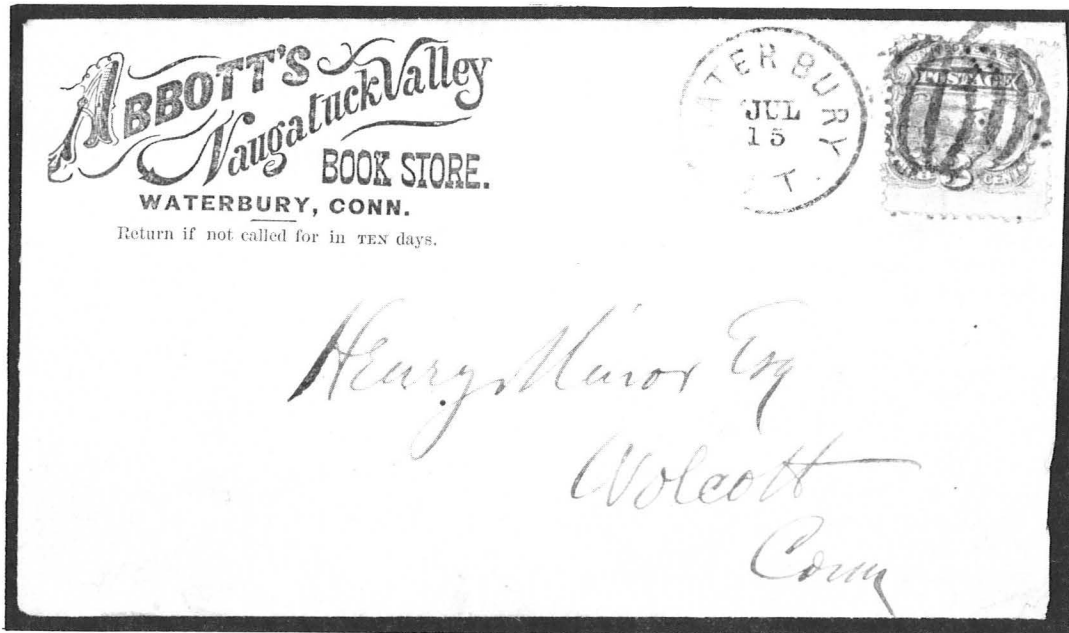 ABBOTT'S
Naugatuck Valley
BOOK STORE.
WATERBURY, CONN.
Return if not called for in TEN days.
WATERBURY
JUL
15
T.
POSTAGE
3
Henry Minor Esq
Wolcott
Conn